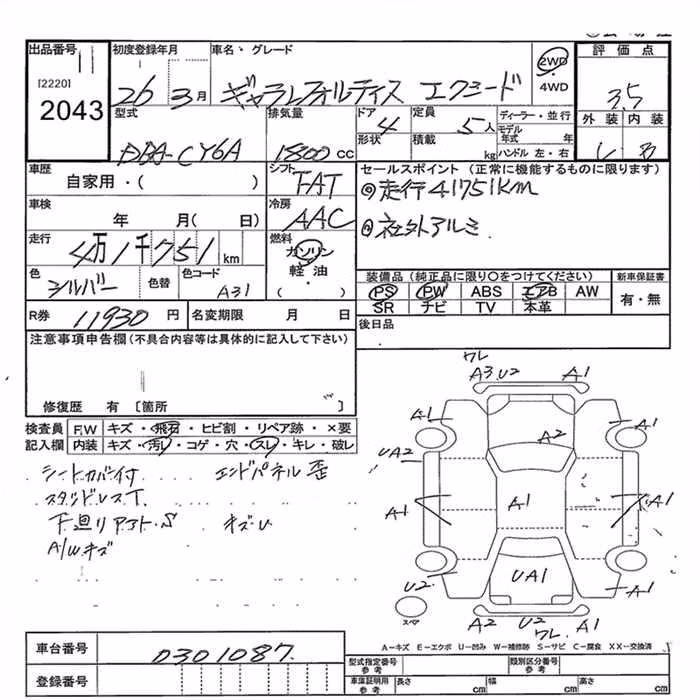 出品番号 初度登録年月 車名・グレード 評価点
[2220]
2043
26 3月 ギャランフォルティス エクシード 2WD 4WD 3.5
型式 排気量 ドア 定員 ディーラー・並行 外装 内装
DBA-CY6A 1800cc 4 5人 モデル年式 年
形状 積載 kg ハンドル 左・右
車歴 シフト セールスポイント (正常に機能するものに限ります)
自家用・( ) FAT ◎走行41751km
車検 冷房 ◎社外アルミ
年 月( 日) AAC
走行 燃料
4万1千751km ガソリン
色 色替 色コード 軽油 装備品 (純正品に限り○をつけてください) 新車保証書
シルバー A31 ( ) PS PW ABS エアB AW 有・無
SR ナビ TV 本革
R券 11930円 名変期限 月 日 後日品
注意事項申告欄(不具合内容等は具体的に記入して下さい)
修復歴 有 〔箇所 〕
検査員 F.W キズ・飛石・ヒビ割・リペア跡・×要
記入欄 内装 キズ・汚レ・コゲ・穴・スレ・キレ・破レ
シートカバー付 エンドパネル歪
スタッドレスT.
下廻りアフト・S キズ・U
A/Wキズ
ワレ
A3.U2 A1
A1 A1
A2
UA2
A1 A1 A1
U2 UA1 A1
スペア
A2 U2 A1
ワレ
A－キズ E－エクボ U－凹み W－補修跡 S－サビ C－腐食 XX－交換済
車台番号 0301087
登録番号
型式指定番号 参考 類別区分番号 参考
車庫証明用 参考 長さ cm 幅 cm 高さ cm